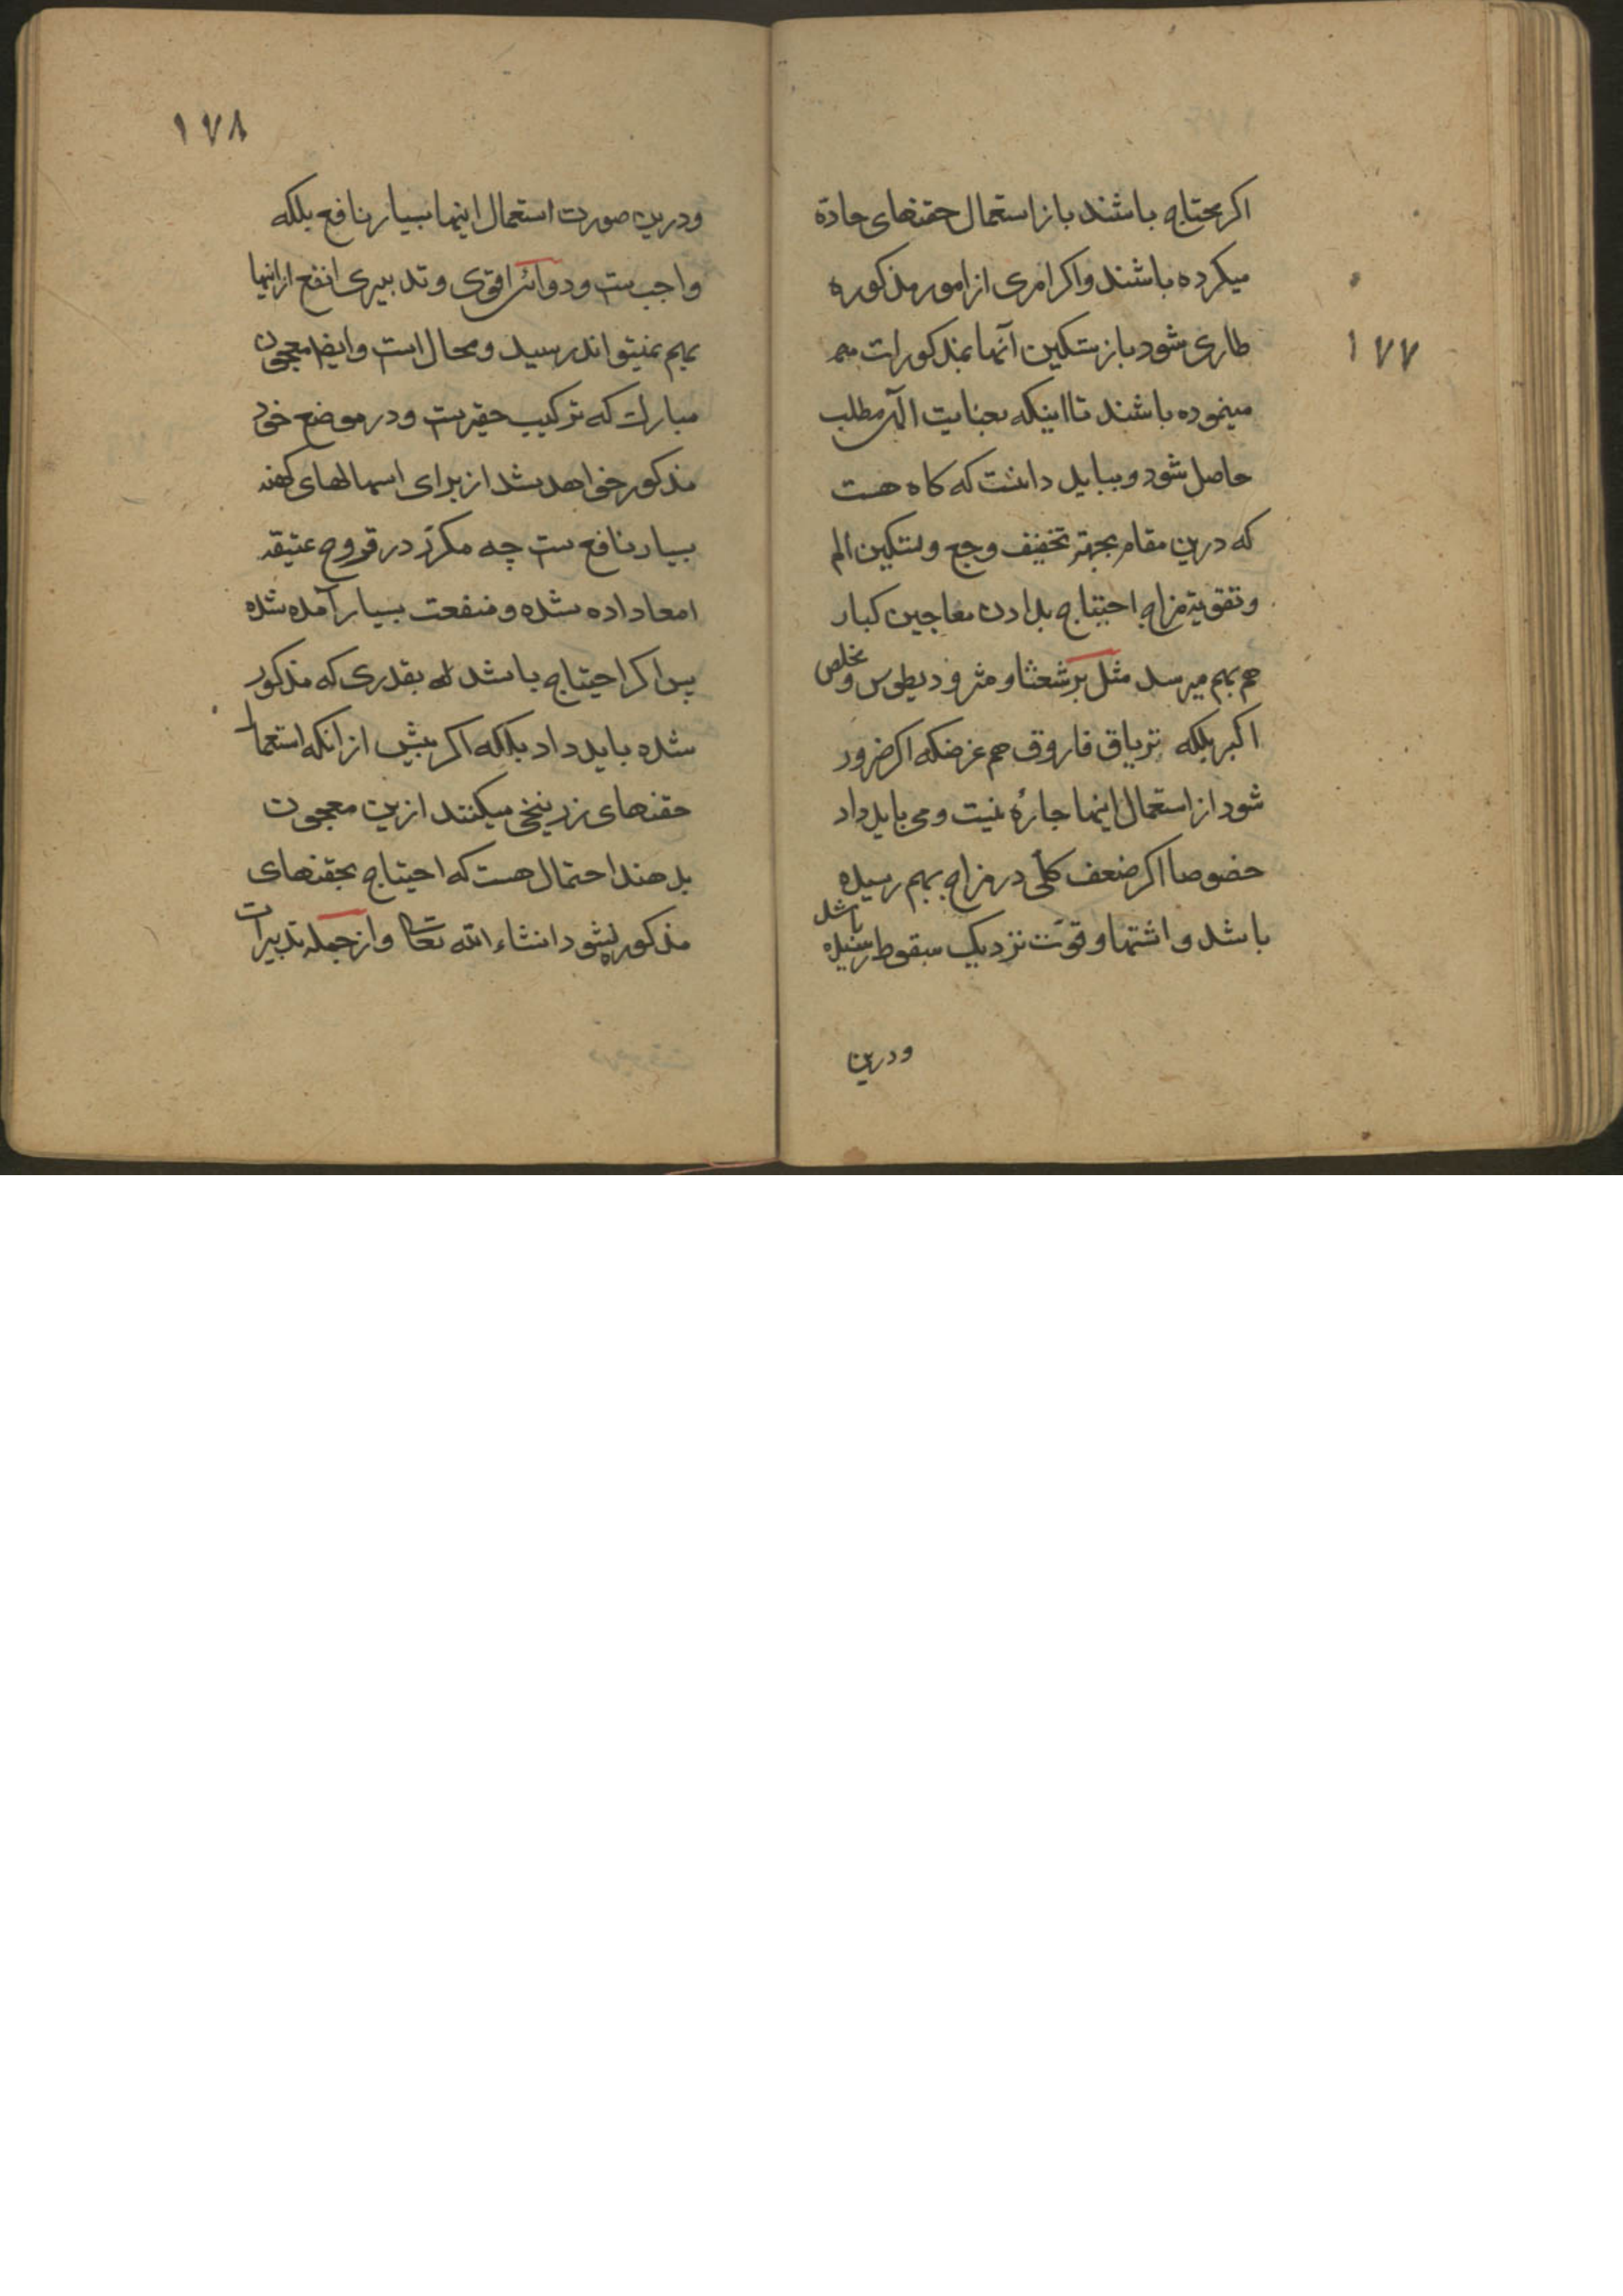 ۱۷۷
اکر محتاج باشند باز استعمال حقنهای حادة
میکرده باشند واکر امری از امور مذکوره
طاری شود باز بتسکین آنها بمذکورات مهم
مینموده باشند تا اینکه بعنایت الهی مطلب
حاصل شود و بباید دانست که کاه هست
که درین مقام بجهة تخفیف وجع وتسکین الم
وتقویة مزاج احتیاج بدادن معاجین کبار
هم بهم میرسد مثل برشعثا و مثرودیطوس و مخلص
اکبر بلکه تریاق فاروق هم غرضکه اکر ضرور
شود از استعمال اینها چارهٔ نیست و می باید داد
خصوصا اکر ضعف کلی در مزاج بهم رسیده
باشد و اشتها و قوت نزدیک بسقوط رسیده باشد
ودرین
۱۷۸
ودرین صورت استعمال اینها بسیار نافع بلکه
واجب ست ودوائی اقوی وتدبیری انفع از اینها
بهم نمیتواند رسید و محال است وایضا معجون
مبارک که ترکیب حقیر ست ودر موضع خود
مذکور خواهد شد از برای اسهالهای کهنه
بسیار نافع ست چه مکرر در قروح عتیقه
امعا داده شده و منفعت بسیار آمده شده
پس اکر احتیاج باشد بقدری که مذکور
شده باید داد بلکه اکر پیش از انکه استعمال
حقنهای زرنیخی میکنند ازین معجون
بدهند احتمال هست که احتیاج بحقنهای
مذکوره نشود انشاء الله تعالی واز جمله تدبیرات